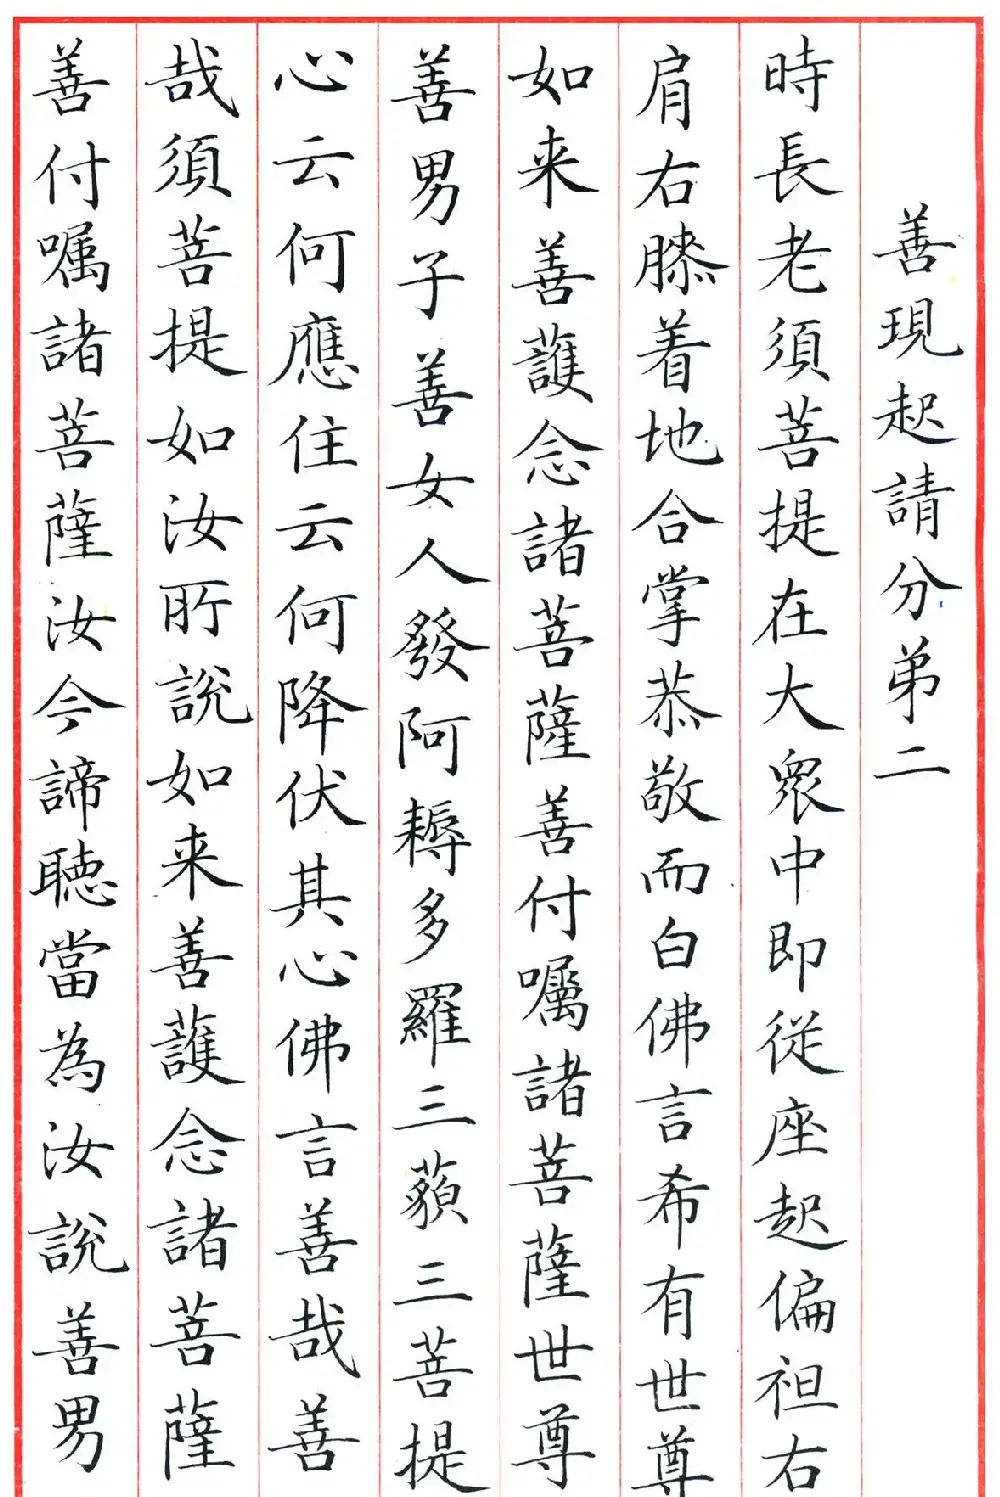 善現起請分弟二
時長老須菩提在大眾中即從座起偏袒右
肩右膝着地合掌恭敬而白佛言希有世尊
如来善護念諸菩薩善付囑諸菩薩世尊
善男子善女人發阿耨多羅三藐三菩提
心云何應住云何降伏其心佛言善哉善
哉須菩提如汝所說如来善護念諸菩薩
善付囑諸菩薩汝今諦聽當為汝說善男